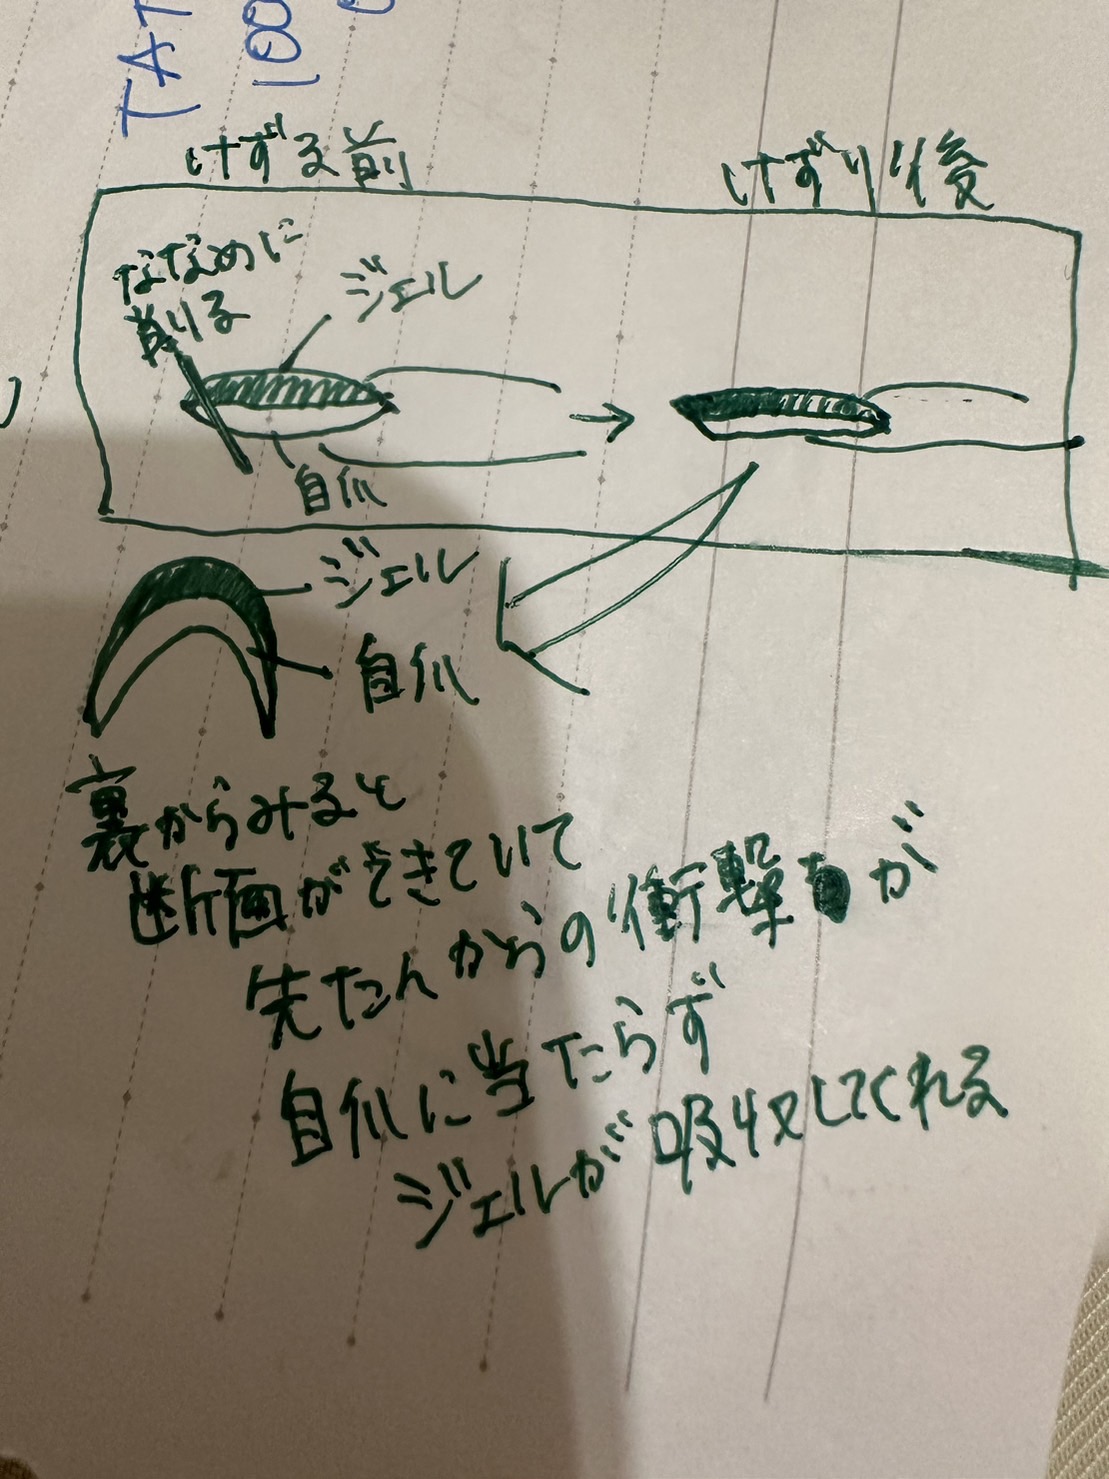 TAT
100
けずる前
けずり後
ななめに
削る
ジェル
自爪
ジェル
自爪
裏からみると
断面ができていて
先たんからの衝撃が
自爪に当たらず
ジェルが吸収してくれる